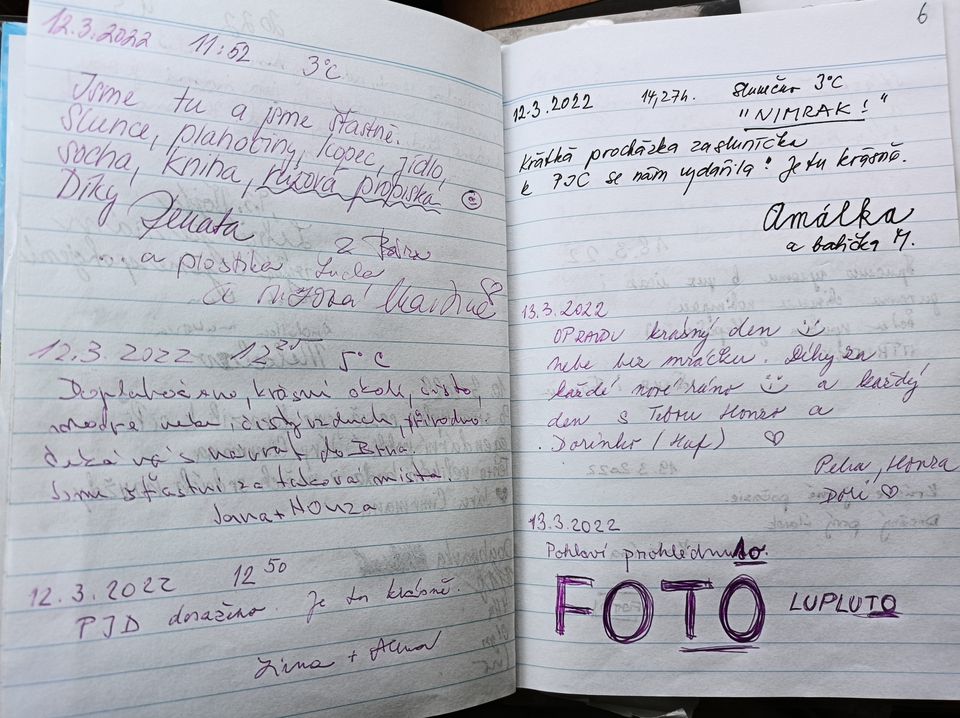 12.3.2022 11:52 3°C
Jsme tu a jsme šťastné.
Slunce, plahočiny, kopec, jídlo,
socha, kniha, růžová propiska
Díky Renata
z Bára
... a plastika Lucla
a Martina
12.3.2022 12 5°C
krásní okolí, čisto,
modré nebe, čistý vzduch, přírodno.
čeká nás návrat do Brna.
Jsme šťastni za taková místa.
Jana + Honza
12.3.2022 12 50
PJD doraženo. Je to krásně.
Jirna + Alena
6
12.3.2022 14,27h. slunečno 3°C
"NIMRAK!"
Krátká procházka za sluníčka
k PJC se nám vydařila! Je tu krásně.
Amálka
a babička M.
13.3.2022
OPRAVDU krásný den
nebe bez mráčku. Díky za
každé nové ráno a každý
den s Tebou Honzo a
Dorinko (Haf) ♡
Petra, Honza
Dori ♡
13.3.2022
Pohlaví prohlédnuto.
FOTO LUPLUTO